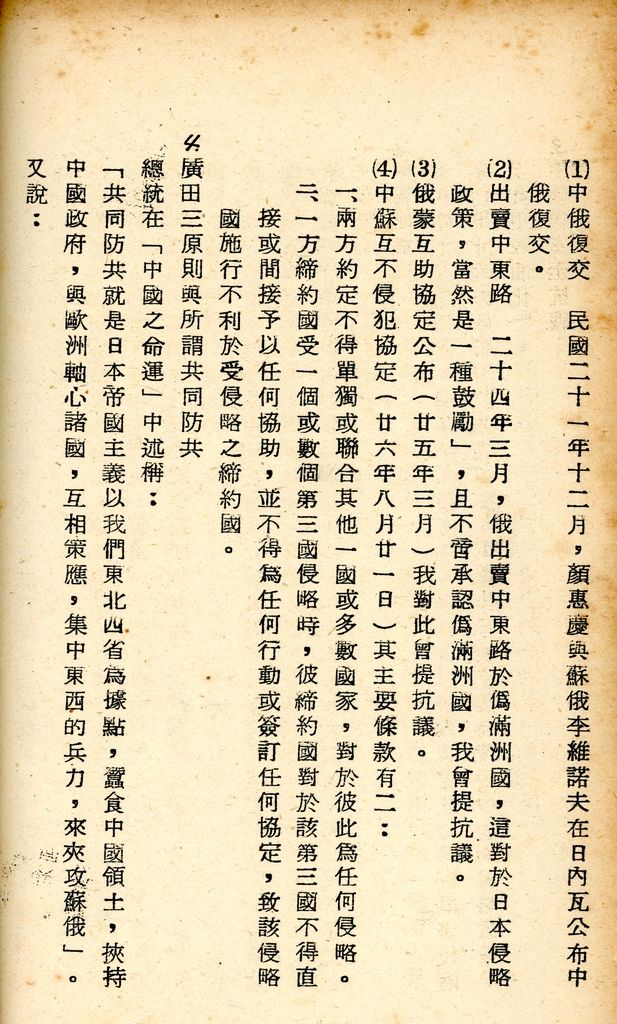 (1)中俄復交　民國二十一年十二月，顏惠慶與蘇俄李維諾夫在日內瓦公布中
俄復交。
(2)出賣中東路　二十四年三月，俄出賣中東路於僞滿洲國，這對於日本侵略
政策，當然是一種鼓勵」，且不啻承認僞滿洲國，我曾提抗議。
(3)俄蒙互助協定公布（廿五年三月）我對此曾提抗議。
(4)中蘇互不侵犯協定（廿六年八月廿一日）其主要條款有二：
一、兩方約定不得單獨或聯合其他一國或多數國家，對於彼此爲任何侵略。
二、一方締約國受一個或數個第三國侵略時，彼締約國對於該第三國不得直
接或間接予以任何協助，並不得爲任何行動或簽訂任何協定，致該侵略
國施行不利於受侵略之締約國。
4.廣田三原則與所謂共同防共
總統在「中國之命運」中述稱：
「共同防共就是日本帝國主義以我們東北四省爲據點，蠶食中國領土，挾持
中國政府，與歐洲軸心諸國，互相策應，集中東西的兵力，來夾攻蘇俄」。
又說：